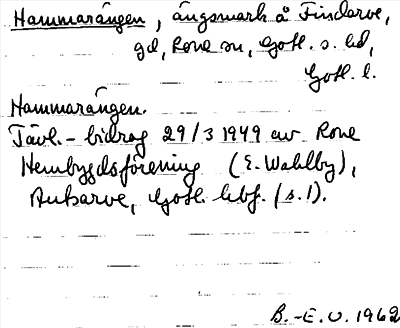 Hammarängen, ängsmark å Findarve,
gd, Rone sn, Gotl. s. hd,
Gotl. l.
Hammarängen.
Tävl.-bidrag 29/3 1949 av Rone
Hembygdsförening (E. Wahlby),
Autsarve, Gotl. hbf. (s.1).
B.-E. U. 1962